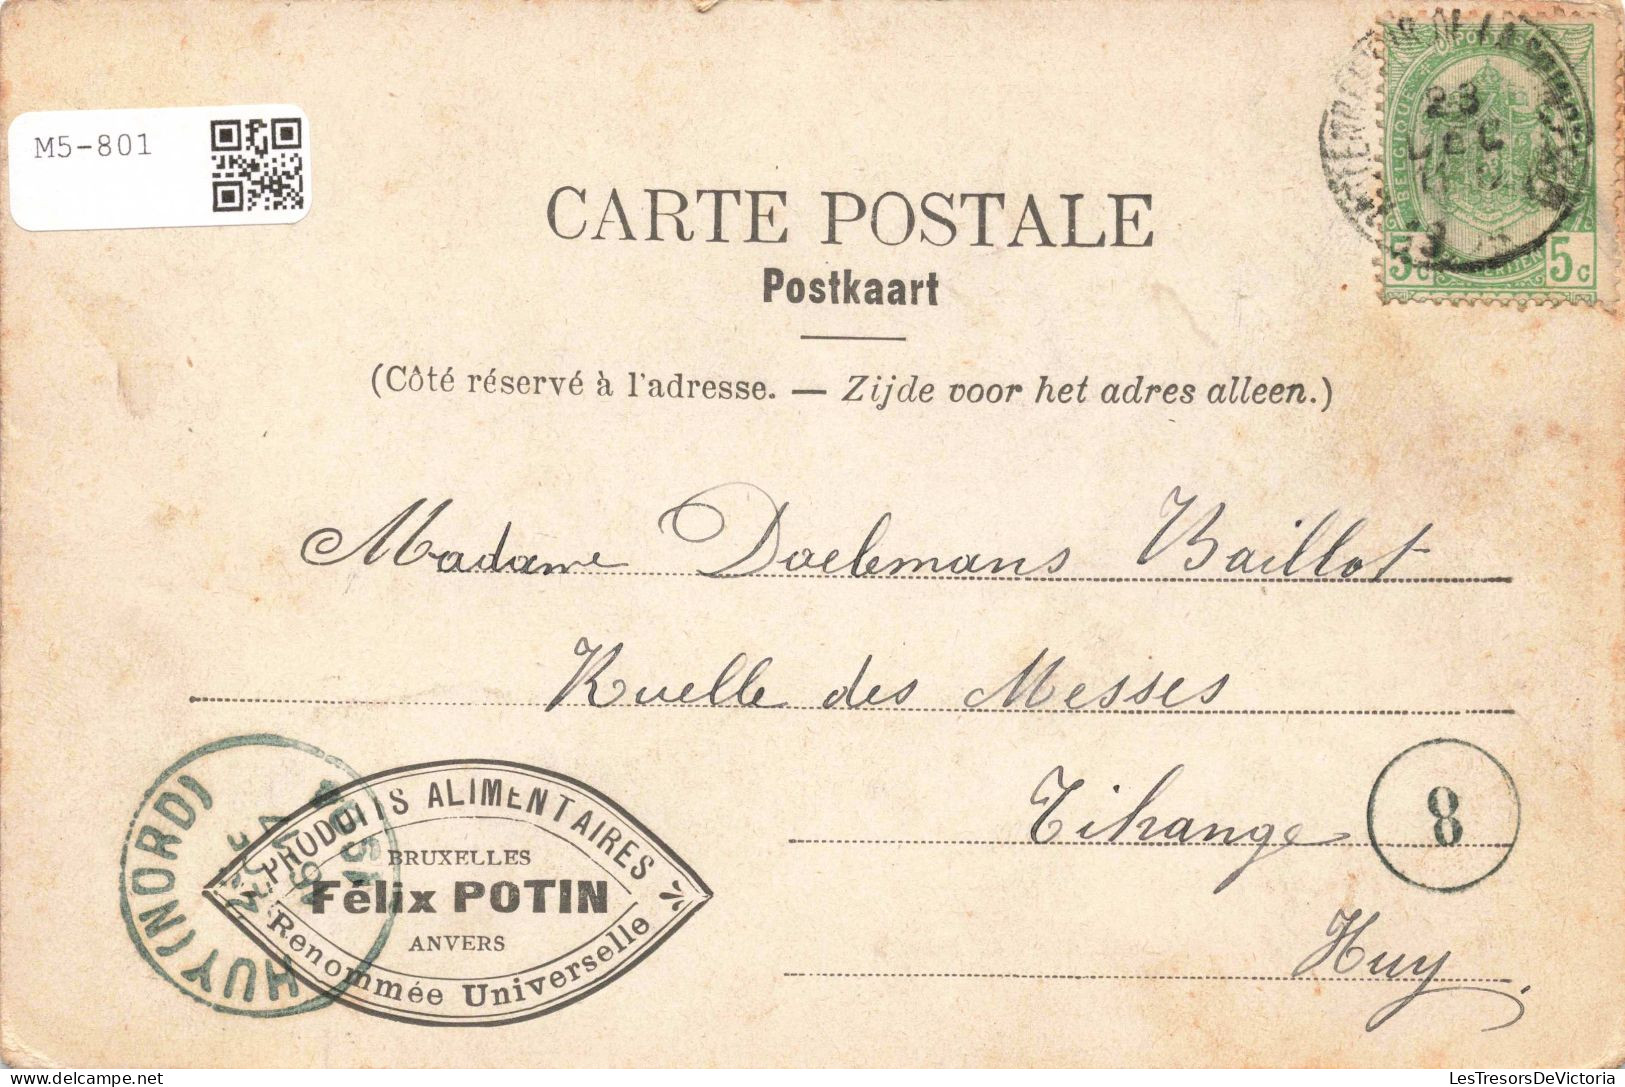 M5-801
CARTE POSTALE
Postkaart
(Côté réservé à l'adresse. — Zijde voor het adres alleen.)
BELGIQUE
23
DEC
5 c 5 c
Madame Daelemans Baillot
Ruelle des Messes
Tihange
8
Huy
HUY (NORD)
PRODUITS ALIMENTAIRES
BRUXELLES
Félix POTIN
ANVERS
Renommée Universelle
LesTresorsDeVictoria